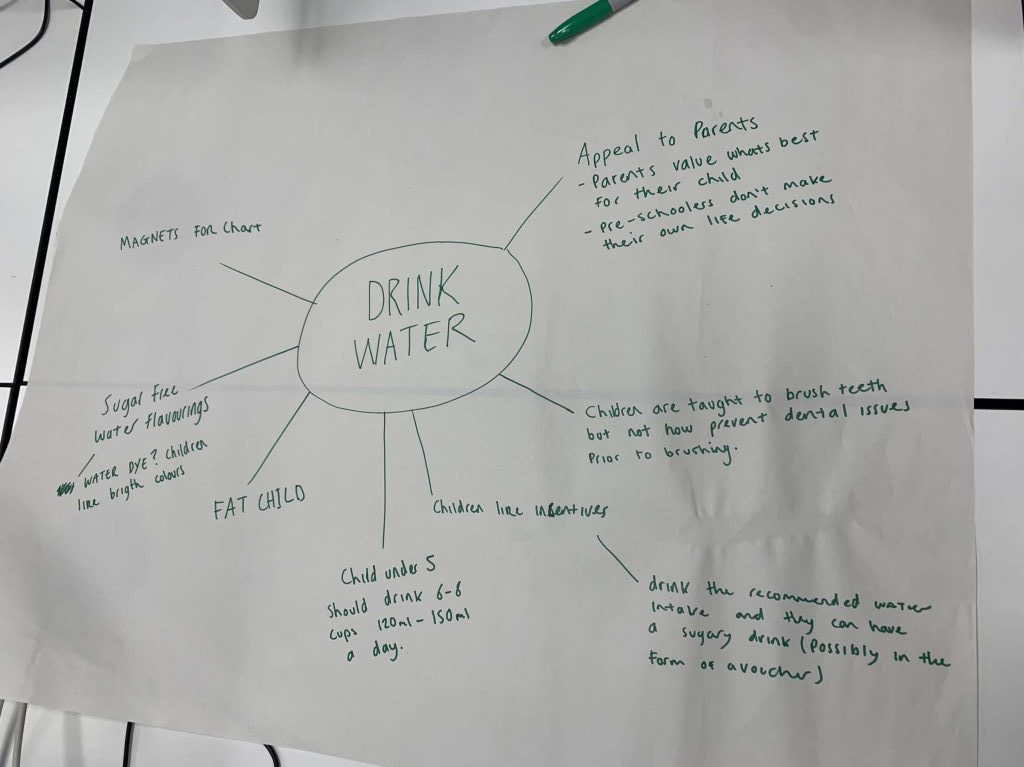 DRINK
WATER
Appeal to Parents
- Parents value whats best
for their child
- Pre-schoolers don't make
their own life decisions
Children are taught to brush teeth
but not how prevent dental issues
Prior to brushing.
Children like insentives
drink the recommended water
intake and they can have
a sugary drink (Possibly in the
form of a voucher)
Child under 5
should drink 6-8
cups 120ml - 150ml
a day.
FAT CHILD
Sugar free
water flavourings
WATER DYE? Children
like brigth colours
MAGNETS FOR Chart